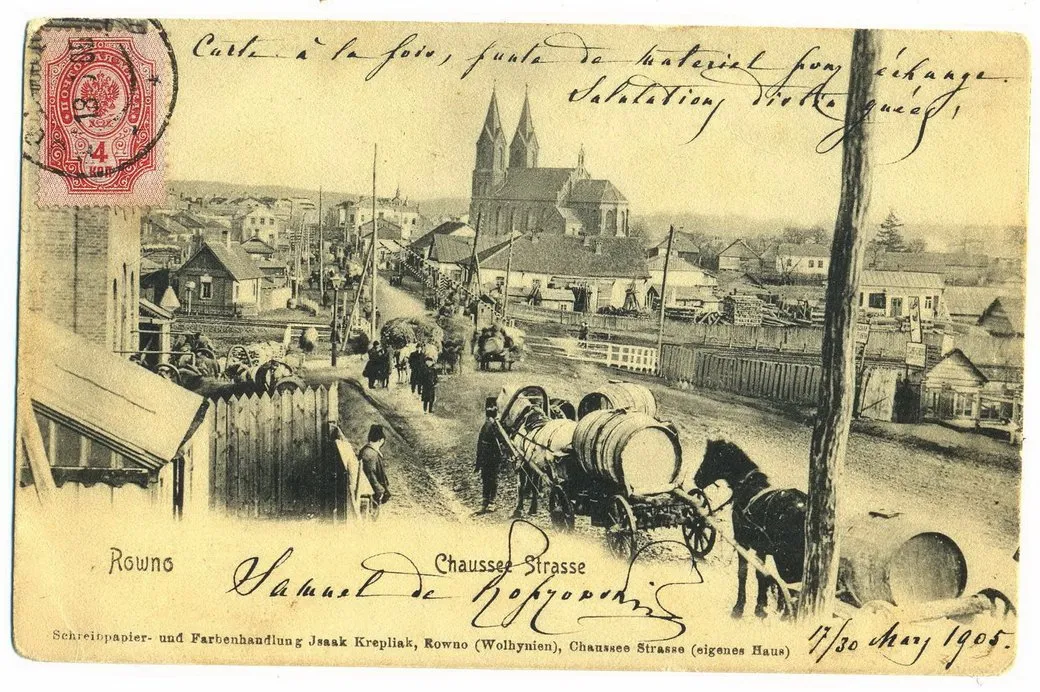 Carte à la fois, faute de materiel pour échange.
Salutations distinguées,
18
ПОЧТОВАЯ МАРКА
4
КОП
Rowno
Chaussee Strasse
Samuel de
Schreibpapier- und Farbenhandlung Jsaak Krepliak, Rowno (Wolhynien), Chaussee Strasse (eigenes Haus)
17/30 Mary 1905.